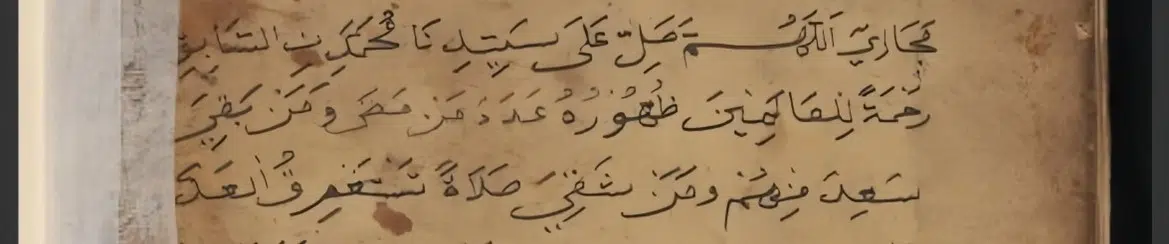 مَجَارِيَ اَللّٰهُمَّ صَلِّ عَلَى سَيِّدِنَا مُحَمَّدِنِ السَّابِقِ
رَحْمَةً لِلْعَالَمِينَ ظُهُورُهُ عَدَدَ مَنْ مَضَى وَمَنْ بَقِيَ
سَعِدَ مِنْهُمْ وَمَنْ شَقِيَ صَلَاةً تَسْتَغْرِقُ الْعَدَّ